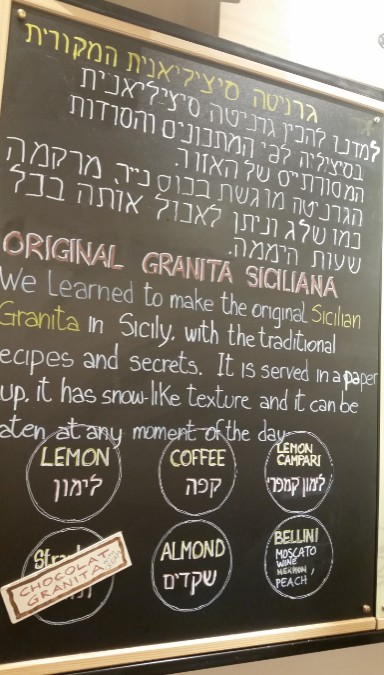 גרניטה סיציליאנית המקורית
למדנו להכין גרניטה סיציליאנית
בסיציליה לפי המתכונים והסודות
המסורתיים של האזור.
הגרניטה מוגשת בכוס נייר, מרקמה
כמו שלג וניתן לאכול אותה בכל
שעות היממה.
ORIGINAL GRANITA SICILIANA
We Learned to make the original Sicilian
Granita in Sicily, with the traditional
ecipes and secrets. It is served in a paper
up, it has snow-like texture and it can be
aten at any moment of the day
LEMON
לימון
COFFEE
קפה
LEMON
CAMPARI
לימון קמפרי
CHOCOLAT
GRANITA
ALMOND
שקדים
BELLINI
MOSCATO
WINE
PEACH